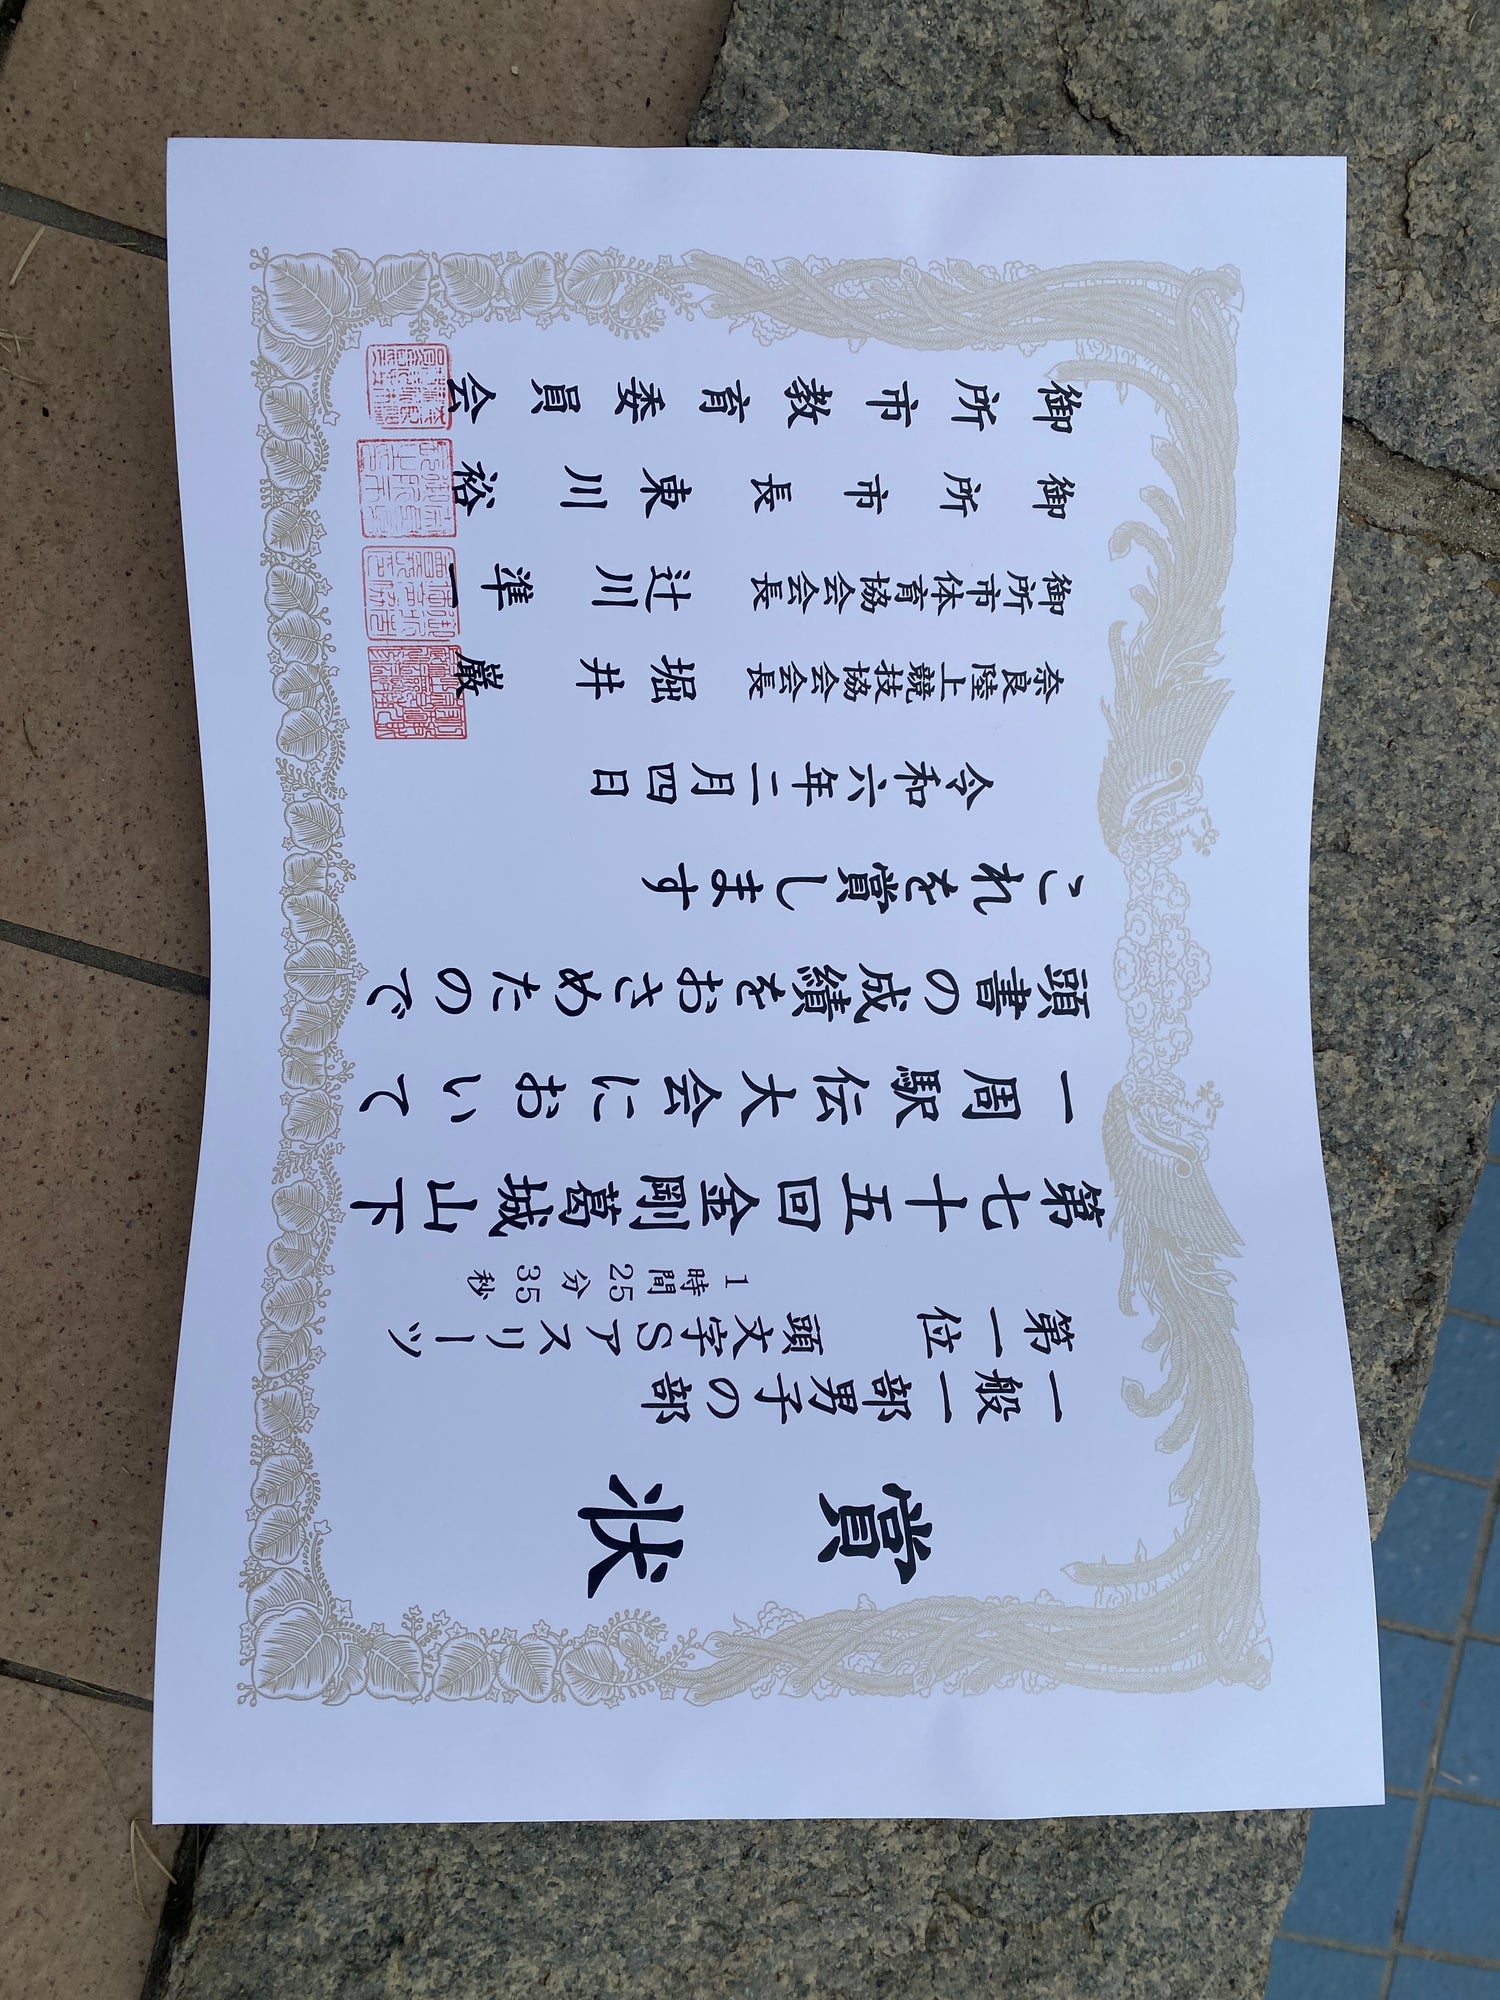 賞状
一般一部男子の部
第一位 頭文字Sアスリーツ
1時間25分35秒
第七十五回金剛葛城山下
一周駅伝大会において
頭書の成績をおさめたので
これを賞します
令和六年二月四日
奈良陸上競技協会会長 堀井 巌
御所市体育協会会長 辻川 準一
御所市長 東川 裕
御所市教育委員会